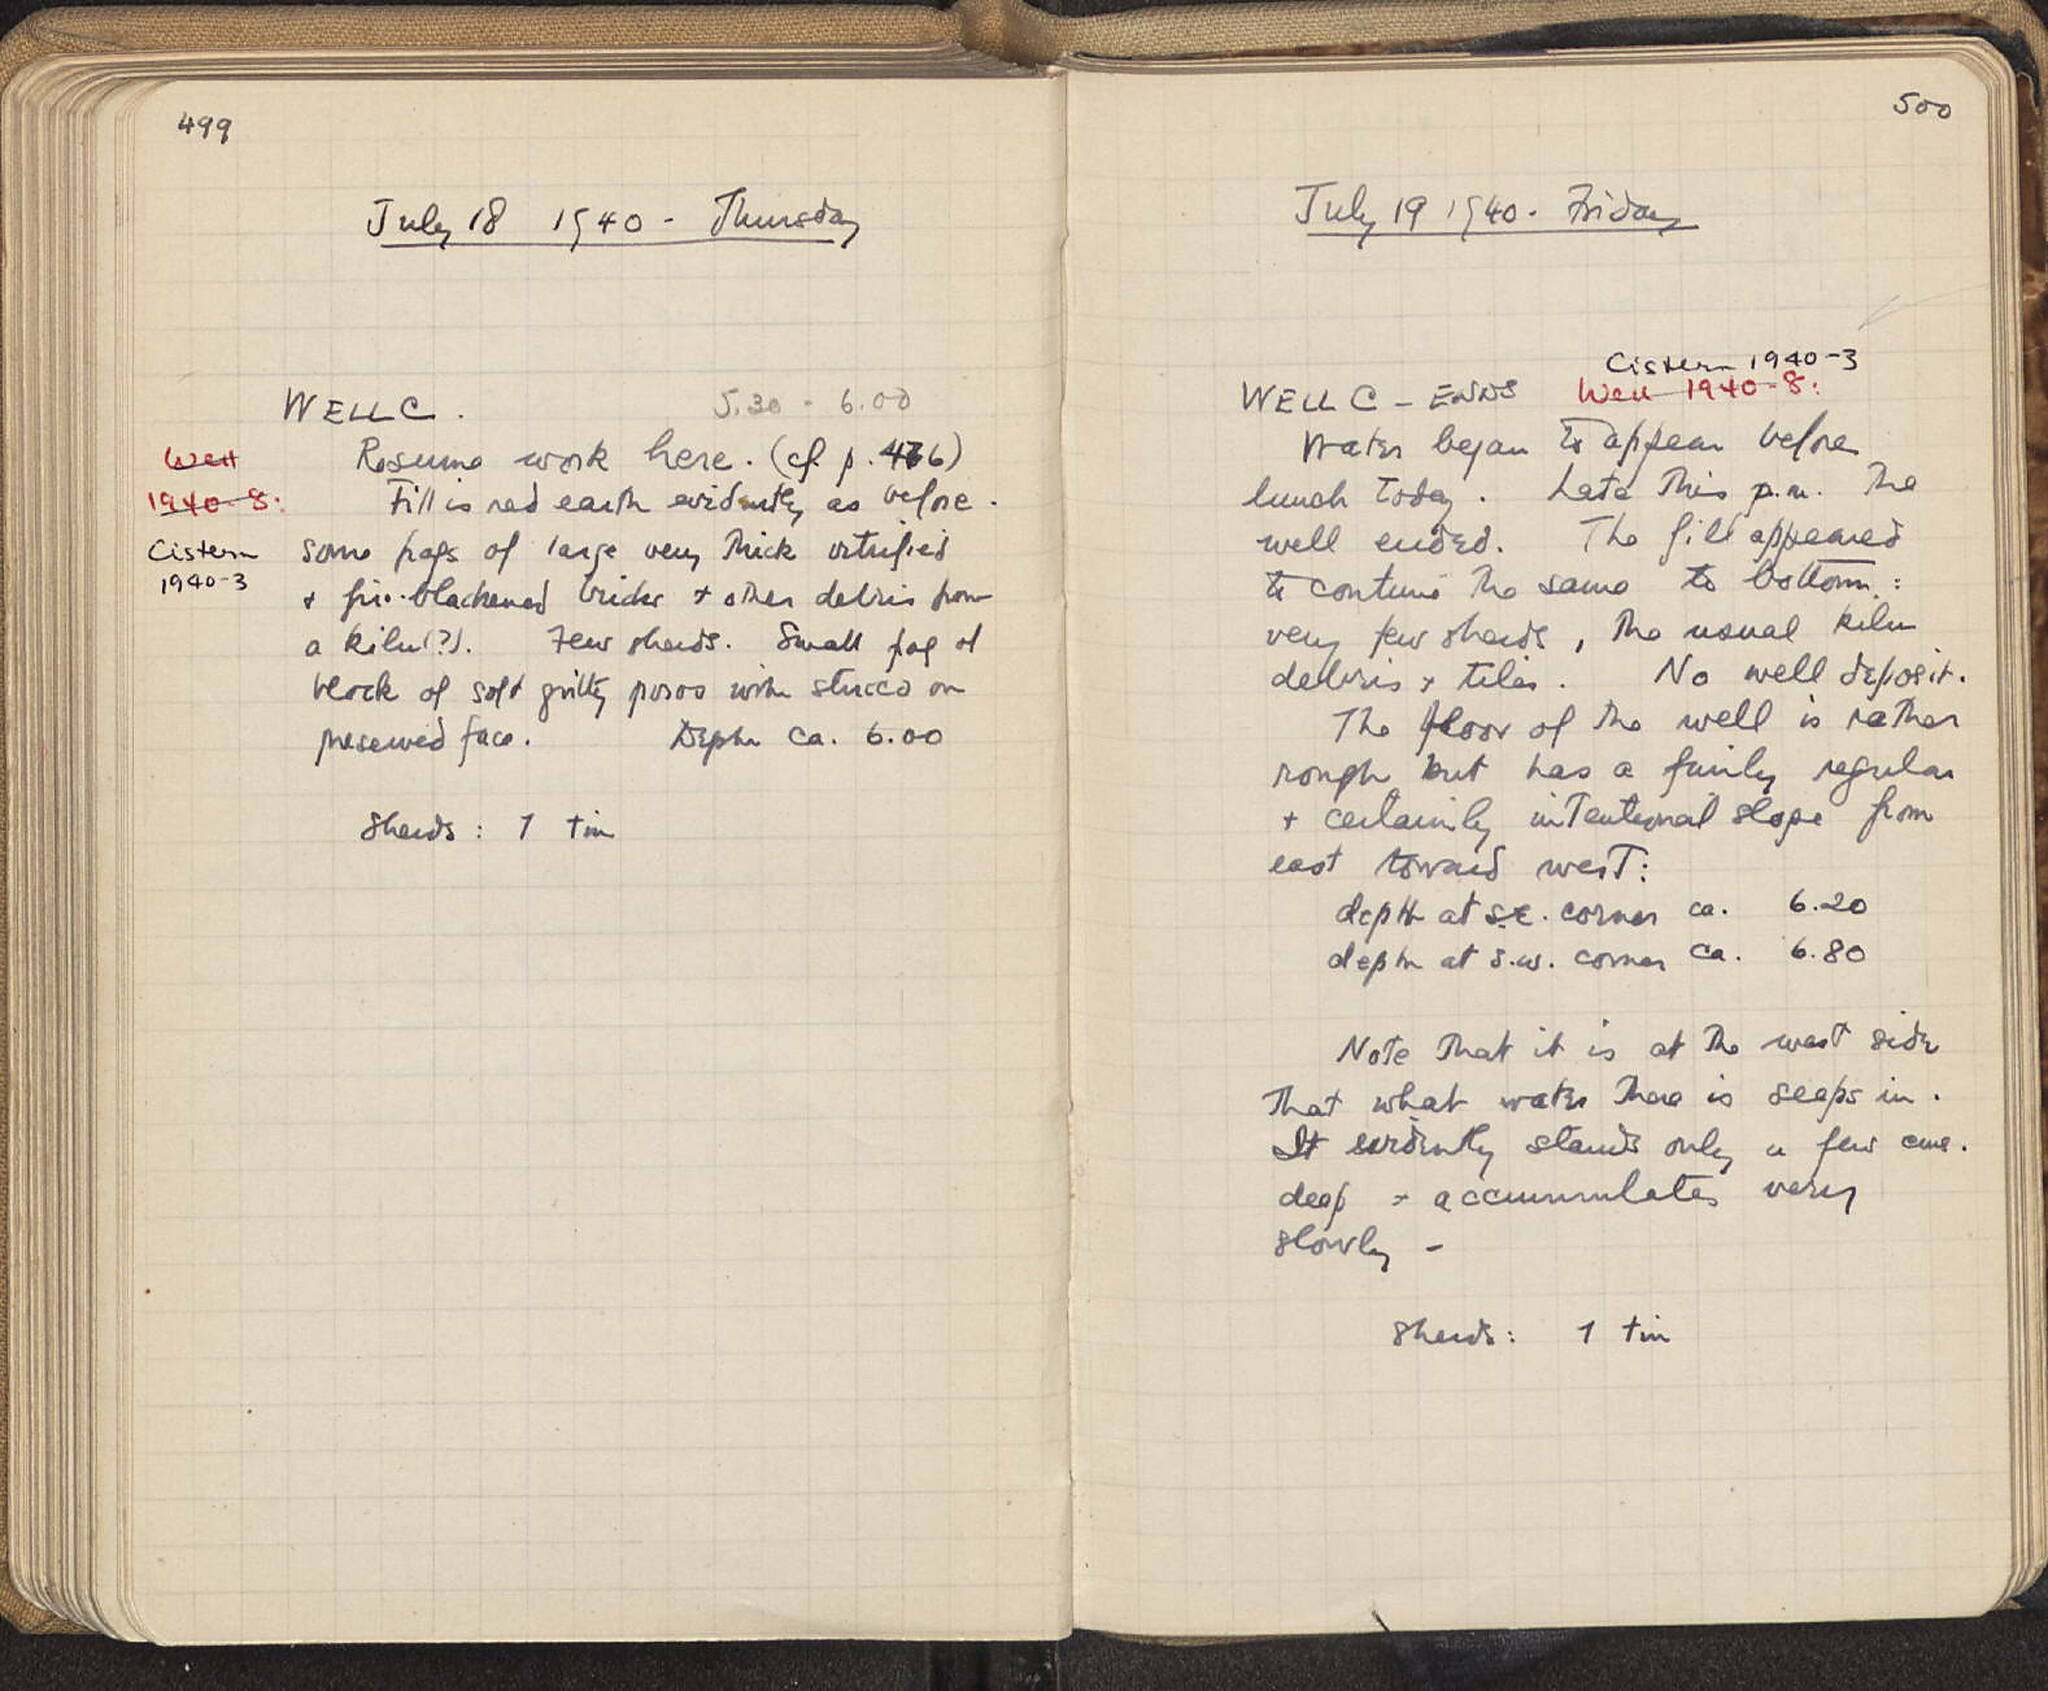 499
July 18 1940 - Thursday
WELL C. 5.30 - 6.00
Well
1940-8:
Cistern
1940-3
Resume work here. (cf. p. 476)
Fill is red earth evidently as before.
Some frags of large very thick vitrified
+ fire-blackened bricks + other debris from
a kiln(?). Few sherds. Small frag of
block of soft gritty poros with stucco on
preserved face. Depth ca. 6.00
Sherds: 1 tin
500
July 19 1940 - Friday
Cistern 1940-3
WELL C - ENDS Well 1940-8:
Water began to appear before
lunch today. Late this p.m. the
well ended. The fill appeared
to continue the same to bottom:
very few sherds, the usual kiln
debris + tiles. No well deposit.
The floor of the well is rather
rough but has a fairly regular
+ certainly intentional slope from
east toward west:
depth at S.E. corner ca. 6.20
depth at S.W. corner ca. 6.80
Note that it is at the west side
that what water there is seeps in.
It evidently stands only a few cms.
deep + accumulates very
slowly -
Sherds: 1 tin